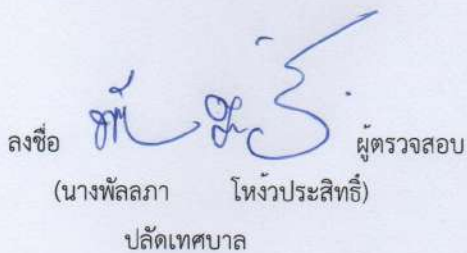 ลงชื่อ ผู้ตรวจสอบ
(นางพัลลภา โหง้วประสิทธิ์)
ปลัดเทศบาล